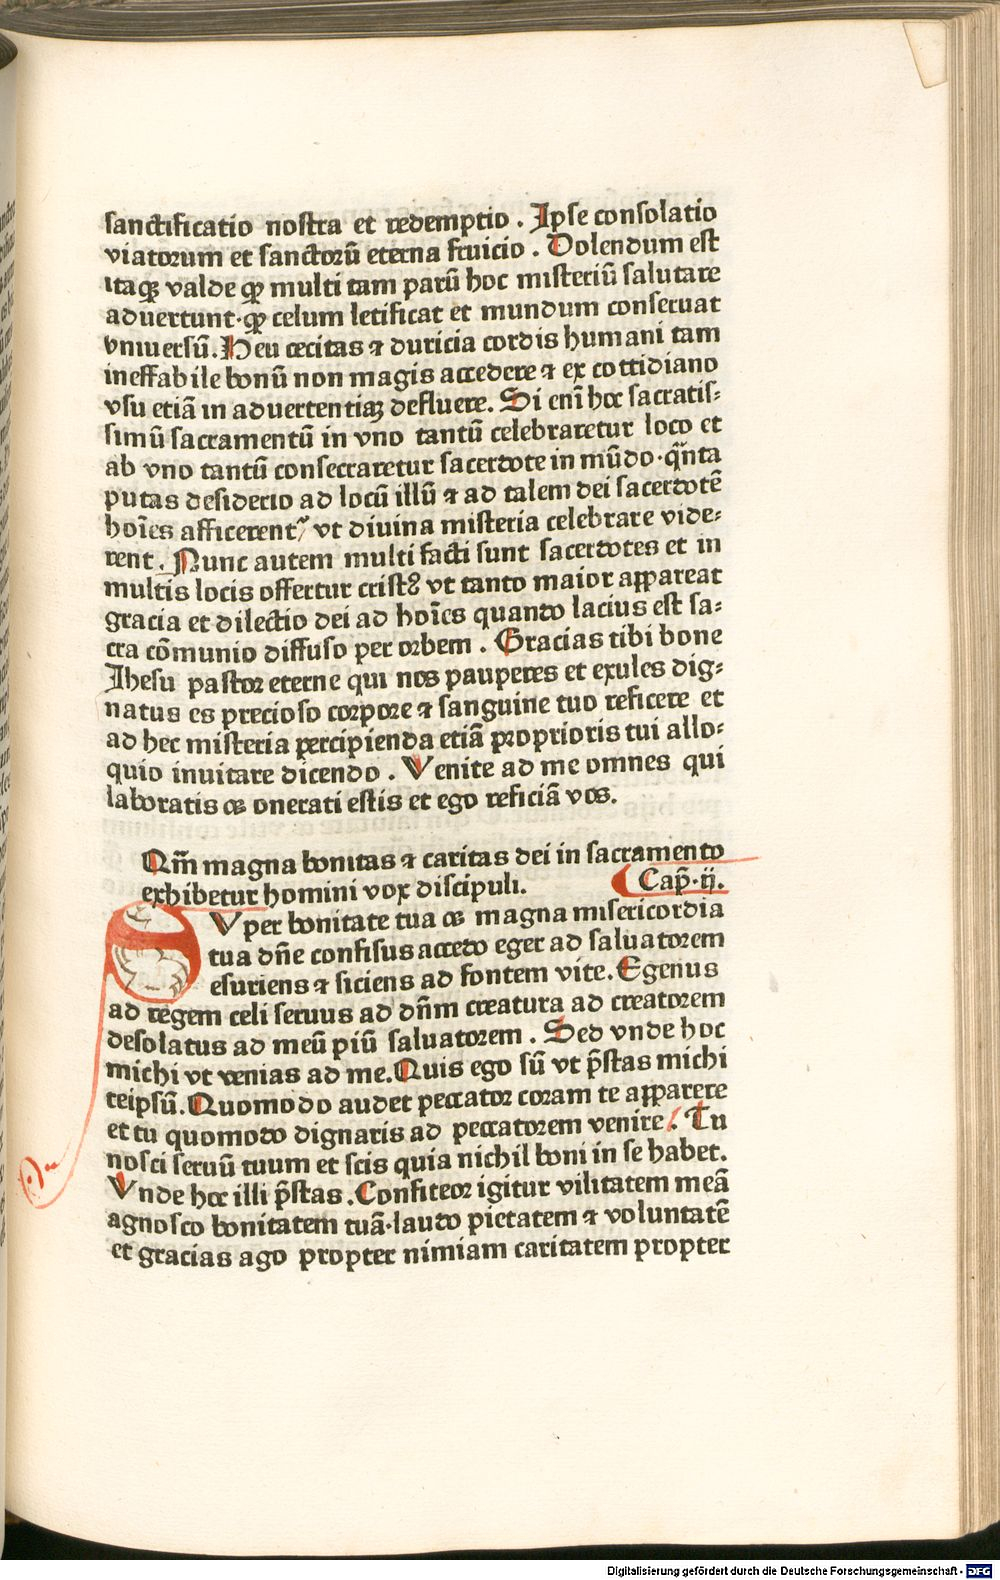 sanctificatio nostra et redemptio . Ipse consolatio
viatorum et sanctorũ eterna fruicio . Dolendum est
itaqꝫ valde qꝙ multi tam parũ hoc misteriũ salutare
aduertunt·qꝙ celum letificat et mundum conseruat
vniuersũ. Heu cecitas ⁊ duricia cordis humani tam
ineffabile bonũ non magis accedere ⁊ ex cottidiano
vsu etiã in aduertentiaꝫ defluere. Si enĩ hoc sacratis⸗
simũ sacramentũ in vno tantũ celebraretur loco et
ab vno tantũ consecraretur sacerdote in mũdo·qñta
putas desiderio ad locũ illũ ⁊ ad talem dei sacerdotẽ
hoĩes afficerent᷑ vt diuina misteria celebrare vide⸗
rent. Nunc autem multi facti sunt sacerdotes et in
multis locis offertur cristꝰ vt tanto maior appareat
gracia et dilectio dei ad hoĩes quanto lacius est sa⸗
cra cõmunio diffuso per orbem . Gracias tibi bone
Ihesu pastor eterne qui nos pauperes et exules dig⸗
natus es precioso corpore ⁊ sanguine tuo reficere et
ad hec misteria percipienda etiã proprioris tui allo⸗
quio inuitare dicendo . Venite ad me omnes qui
laboratis & onerati estis et ego reficiã vos.
Qm̃ magna bonitas ⁊ caritas dei in sacramento
exhibetur homini vox discipuli. Cap̃·ij.
SVper bonitate tua & magna misericordia
tua dñe confisus accedo eger ad saluatorem
esuriens ⁊ siciens ad fontem vite. Egenus
ad regem celi seruus ad dñm creatura ad creatorem
desolatus ad meũ piũ saluatorem . Sed vnde hoc
michi vt venias ad me. Quis ego sũ vt p̃stas michi
teipsũ. Quomodo audet peccator coram te apparere
et tu quomodo dignaris ad peccatorem venire. Tu
nosci seruũ tuum et scis quia nichil boni in se habet.
Vnde hoc illi p̃stas. Confiteor igitur vilitatem meã
agnosco bonitatem tuã·laudo pietatem ⁊ voluntatẽ
et gracias ago propter nimiam caritatem propter
Digitalisierung gefördert durch die Deutsche Forschungsgemeinschaft - DFG